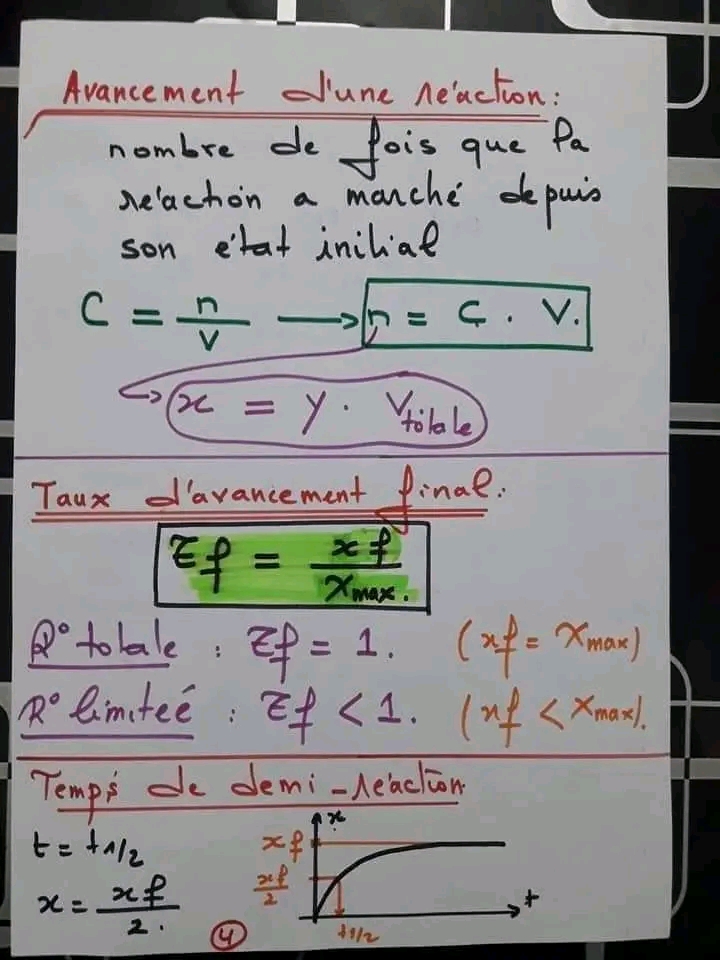 Avancement d'une réaction :
nombre de fois que la
réaction a marché depuis
son état initial
C = n/V → n = C . V.
x = y . Vtotale
Taux d'avancement final :
τf = xf / Xmax.
R° totale : τf = 1. (xf = Xmax)
R° limiteé : τf < 1. (xf < Xmax).
Temps de demi-réaction
t = t1/2
x = xf / 2.
x
xf
xf/2
t1/2
t
4